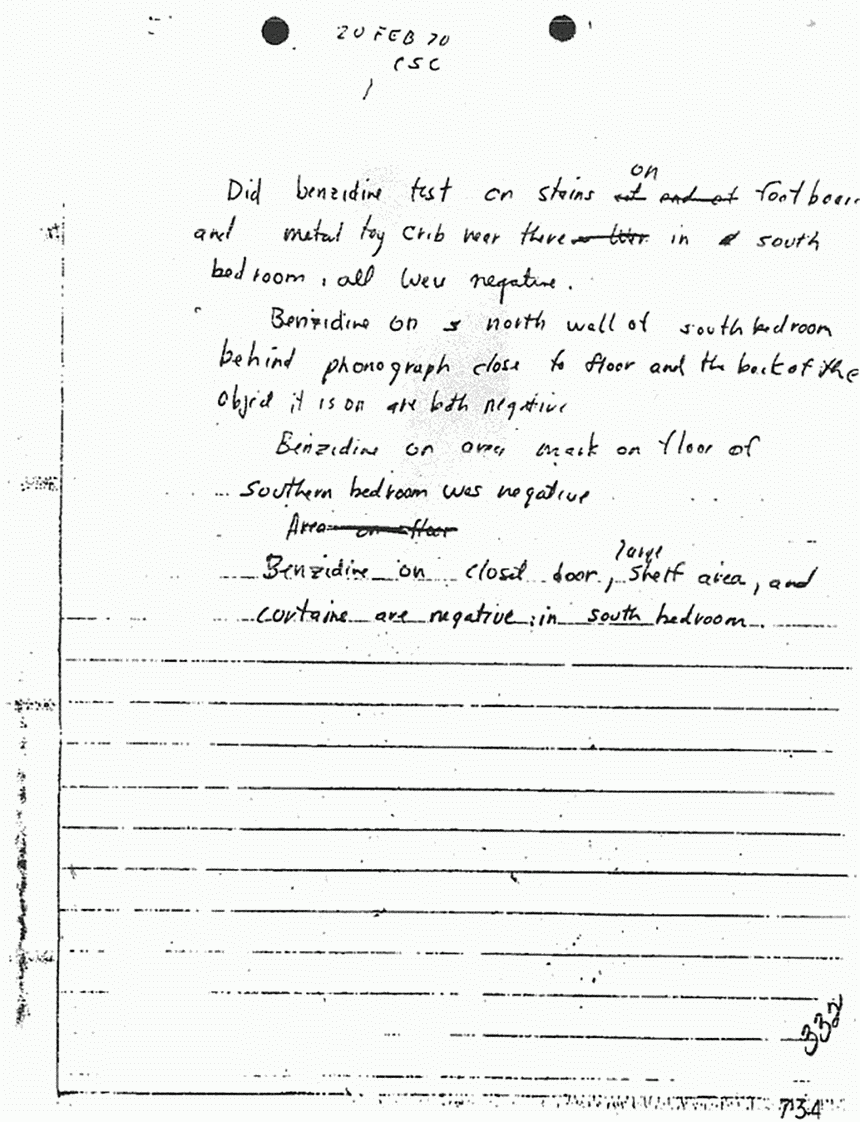 20 FEB 70
CSC
1
on
Did benzidine test on stains at end of footboar
and metal toy crib near there in south
bedroom, all were negative.
Benzidine on s north wall of south bedroom
behind phonograph close to floor and the back of the
object it is on are both negative
Benzidine on area mark on floor of
Southern bedroom was negative
Area on floor
large
Benzidine on closet door, shelf area, and
curtains are negative in south bedroom.
332
734